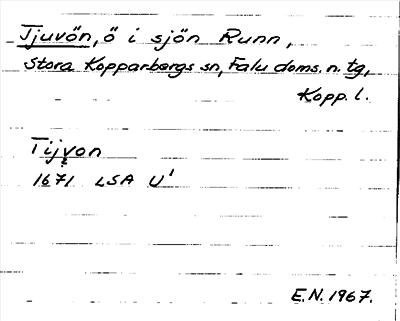 Tjuvön, ö i sjön Runn,
Stora Kopparbergs sn, Falu doms. n. tg,
Kopp. l.
Tijvon
1671 LSA U'
E.N. 1967.